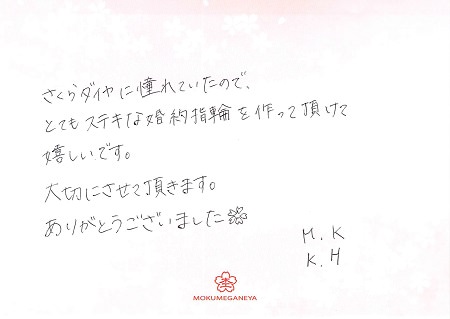 さくらダイヤに憧れていたので、
とてもステキな婚約指輪を作って頂けて
嬉しいです。
大切にさせて頂きます。
ありがとうございました
M.K
K.H
MOKUMEGANEYA